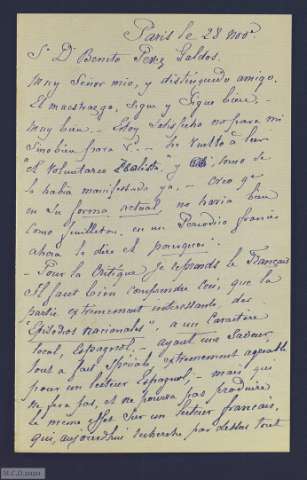 Paris le 28 Novº
Sr Dn Benito Perez Galdos.
Muy Señor mio, y distinguido amigo.
El maestrazgo, sigue y sigue bien,-
muy bien.- Estoy satisfecho no para mi
sino bien para V.- he vuelto a leer
"el voluntario Realista" y como se
lo habia manifestado ya.- creo que
en su forma actual, no haria bien
como feuilleton, en un Periodico francés
ahora le dire el pourquoi.
- Pour la critique, je reprends le Français
Il faut bien comprendre ceci, que la
partie extremement interessante, des
"Episodios nacionales", a un Caractère
local, Espagnol,- ayant une Saveur,
tout a fait spéciale, extremement agreable,
pour un lecteur Espagnol,- mais qui
ne fera pas, et ne pourra pas produire
le même effet sur un lecteur français,
qui, aujourd'hui recherche par dessus tout
M.C.D. 2022